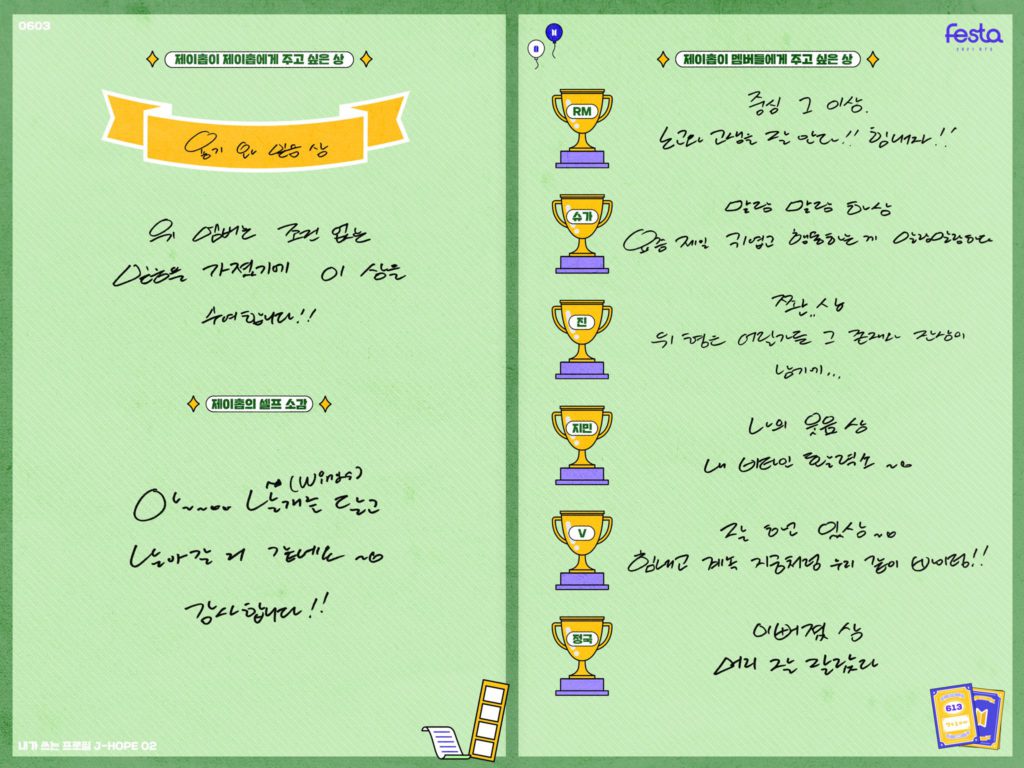 0603
제이홉이 제이홉에게 주고 싶은 상
용기 와 믿음 상
위 멤버는 조건 없는
믿음을 가졌기에 이 상을
수여합니다!!
제이홉의 셀프 소감
아~~... 날개를 달고
~(Wings)
날아갈 거 같네요 ~
감사합니다!!
내가 쓰는 프로필 J-HOPE 02
festa
2021 BTS
제이홉이 멤버들에게 주고 싶은 상
RM
중심 그 이상.
노고와 고생을 잘 안다!! 힘내자!!
슈가
말랑 말랑 해 상
요즘 제일 귀엽고 행동하는 게 말랑말랑하다
진
쯔완.. 상
위 형은 어딜가든 그 존재와 잔상이
남기기...
지민
나의 웃음 상
내 비타민 활력소 ~
V
잘 하고 있 상 ~
힘내고 계속 지금처럼 우리 같이 화이팅!!
정국
이뻐졌 상
머리 잘 잘랐다
613